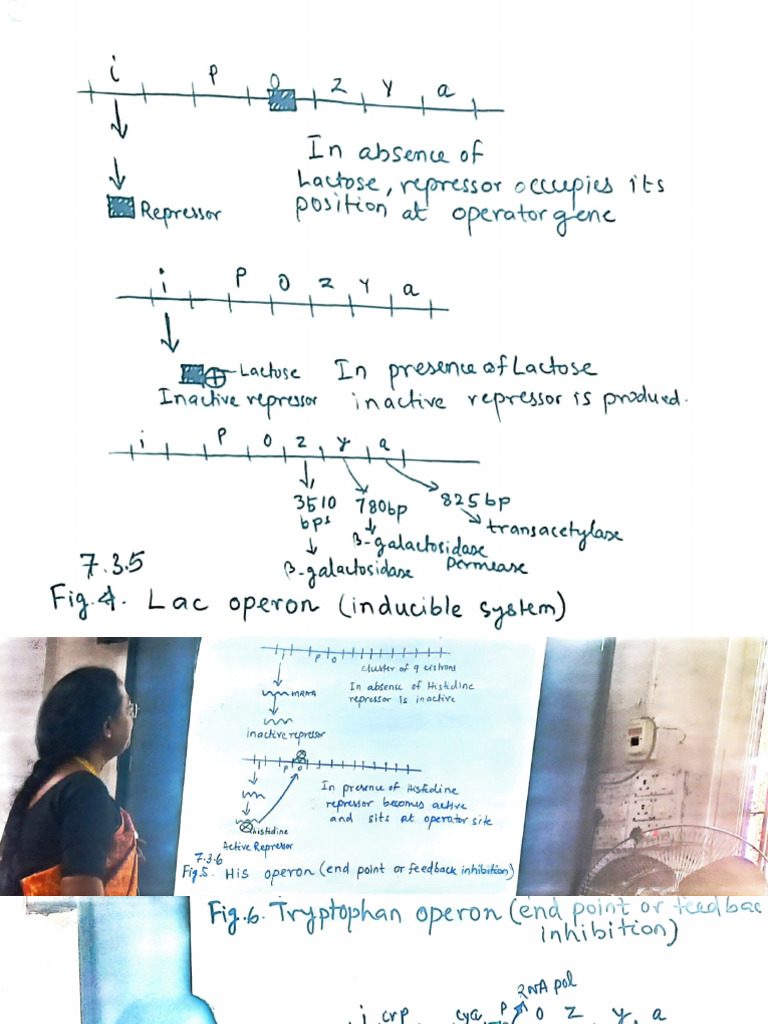 i P O Z Y a
In absence of
Lactose, repressor occupies its
position at operator gene
Repressor
i P O Z Y a
Lactose
In presence of Lactose
Inactive repressor
inactive repressor is produed.
i P O Z Y a
3510
bps
780bp
825bp
transacetylase
β-galactosidase
permease
β-galactosidase
7.3.5
Fig.4. Lac operon (inducible system)
P O
cluster of 9 cistrons
mRNA
In absence of Histidine
repressor is inactive
inactive repressor
i P O
In presence of Histidine
repressor becomes active
and sits at operator site
histidine
Active Repressor
7.3.6
Fig.5. His operon (end point or feedback inhibition)
Fig.6. Tryptophan operon (end point or feedbac
inhibition)
RNA pol
i crp cya P O Z Y a